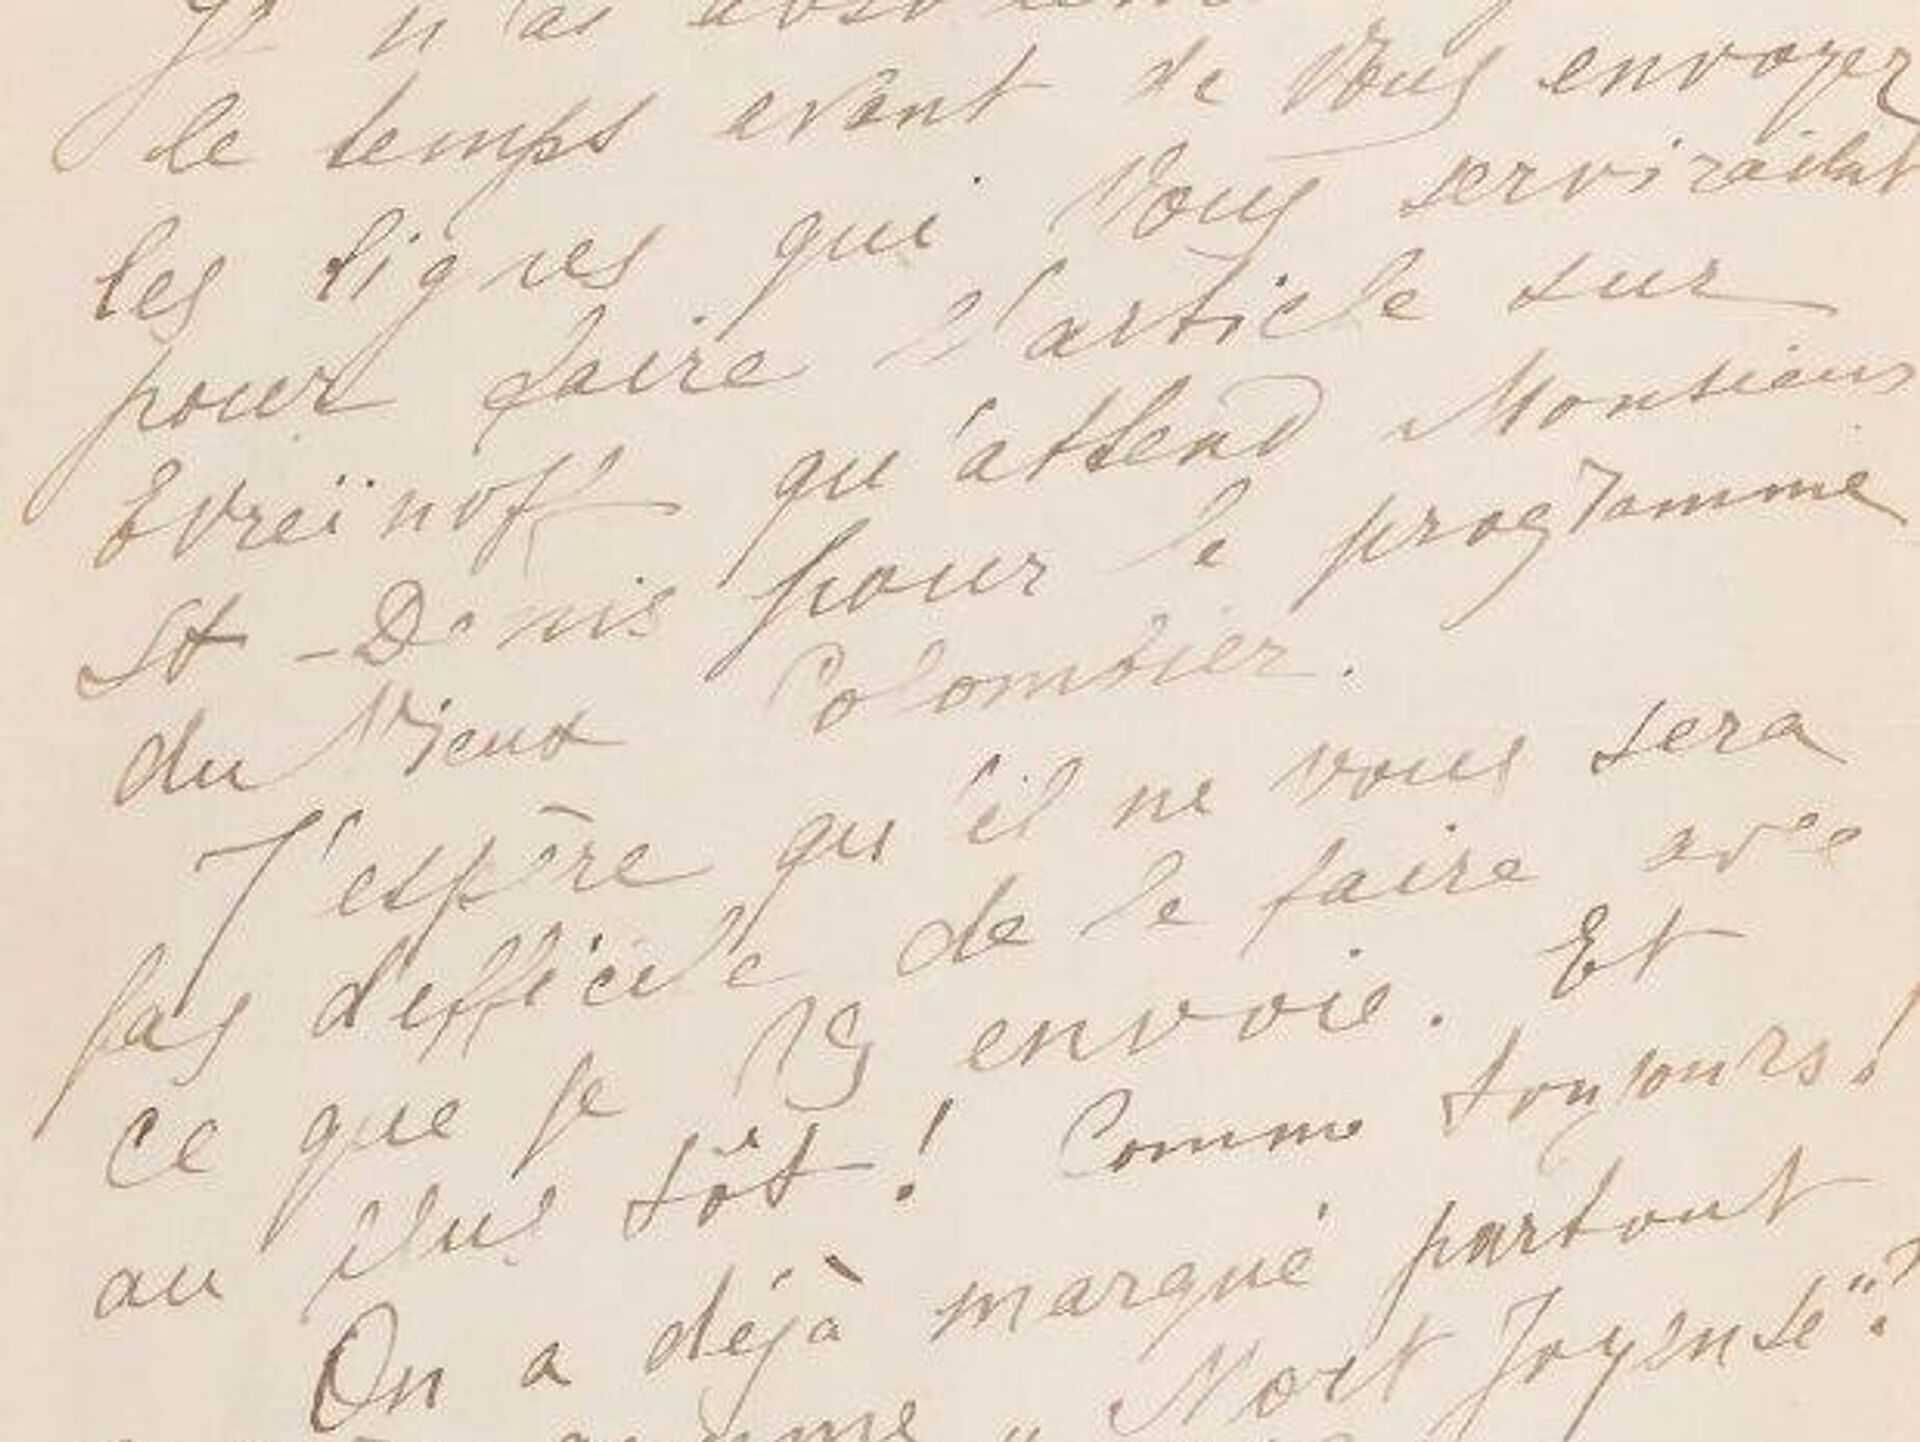 le temps avant de Vous envoyer
les lignes qui Vous serviraient
pour faire l'article sur
Evreïnoff qu'attend Monsieur
St-Denis pour le programme
du Vieux Colombier.
J'espère qu'il ne vous sera
pas defficile de le faire avec
ce que je Vs envoie. Et
au plus tôt! Comme toujours!
On a déjà marqué partout
"Mort Joyeuse"?